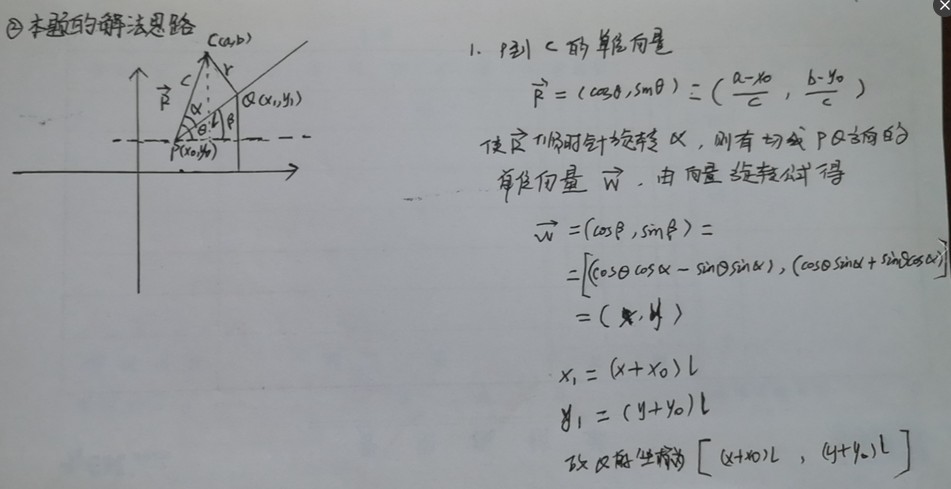 ②本题的解法思路
C(a,b)
C
r
R
Q(x₁,y₁)
α
θ
l
β
P(x₀,y₀)
1. P到C的单位向量
R = (cosθ, sinθ) = (a-x₀/c, b-y₀/c)
使R顺时针旋转α,则有切线PQ方向的
单位向量 W. 由向量旋转公式得
W = (cosβ, sinβ) =
= [(cosθcosα - sinθsinα), (cosθsinα + sinθcosα)]
= (x, y)
x₁ = (x+x₀)l
y₁ = (y+y₀)l
故Q的坐标为 [(x+x₀)l , (y+y₀)l]